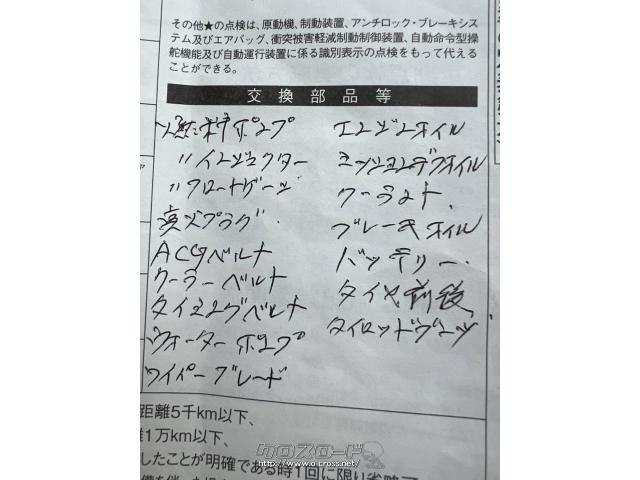 その他★の点検は、原動機、制動装置、アンチロック・ブレーキシス
テム及びエアバッグ、衝突被害軽減制動制御装置、自動命令型操
舵機能及び自動運行装置に係る識別表示の点検をもって代える
ことができる。
交換部品等
燃料ポンプ
〃インジェクター
〃フロートゲージ
点火プラグ
ACGベルト
クーラーベルト
タイミングベルト
ウォーターポンプ
ワイパーブレード
エンジンオイル
ミッションデフオイル
クーラント
ブレーキオイル
バッテリー
タイヤ前後
タイロッドブーツ
距離5千km以下、
1万km以下、
したことが明確である時1回に限り省略
クロスロード
http://www.o-cross.net/